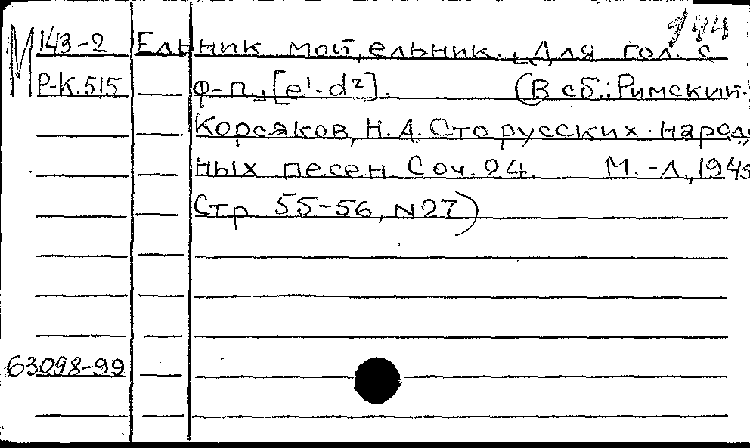 944
М 143-2 Ельник мой, ельник. Для гол. с
Р-К.515 ф-п., [e¹-d²]. (В сб.: Римский-
Корсаков, Н.А. Сто русских народ-
ных песен Соч. 24. М.-Л., 1945
Стр 55-56, N 27)
63098-99